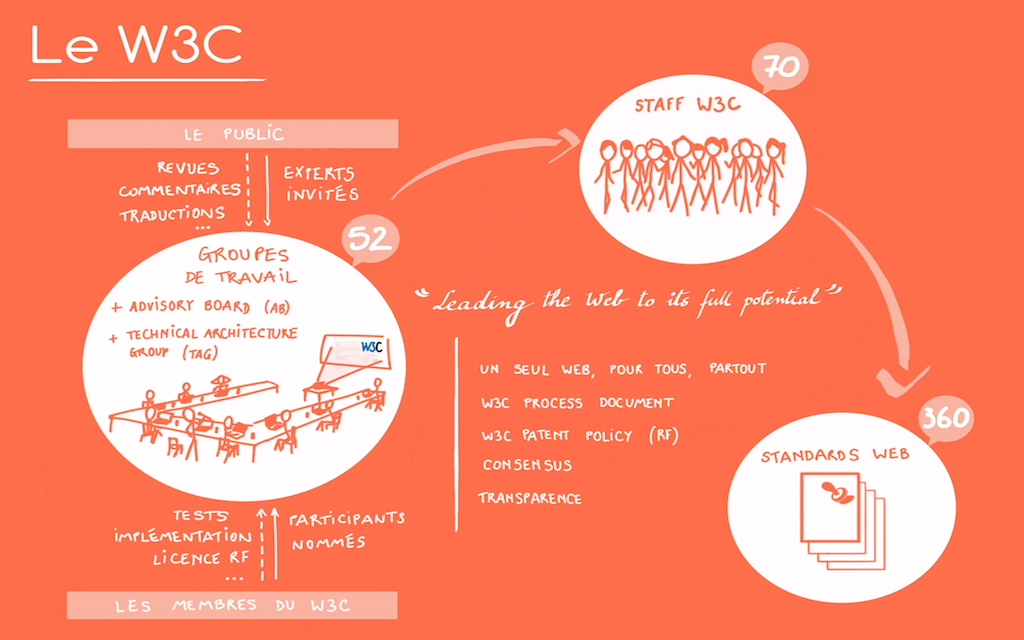 Le W3C
LE PUBLIC
REVUES
COMMENTAIRES
TRADUCTIONS
...
EXPERTS
INVITÉS
52
GROUPES
DE TRAVAIL
+ ADVISORY BOARD (AB)
+ TECHNICAL ARCHITECTURE
GROUP (TAG)
W3C
TESTS
IMPLÉMENTATION
LICENCE RF
...
PARTICIPANTS
NOMMÉS
LES MEMBRES DU W3C
70
STAFF W3C
"Leading the Web to its full potential"
UN SEUL WEB, POUR TOUS, PARTOUT
W3C PROCESS DOCUMENT
W3C PATENT POLICY (RF)
CONSENSUS
TRANSPARENCE
360
STANDARDS WEB